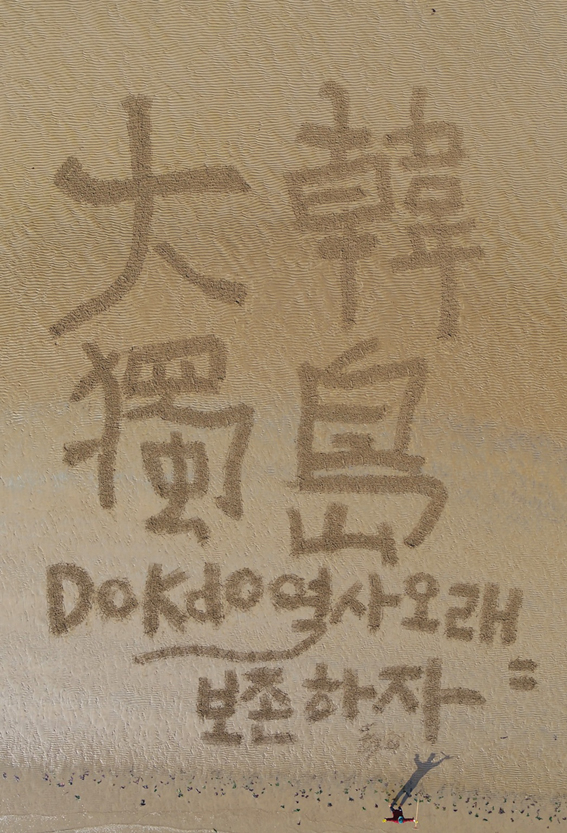 大韓
獨島
Dokdo역사오래
보존하자